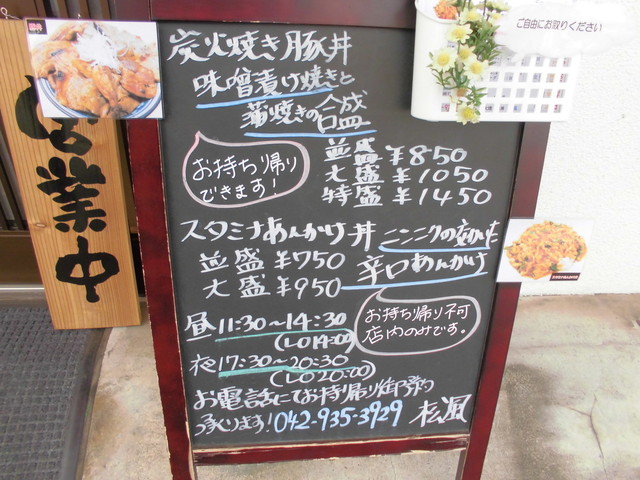 炭火焼き豚丼
味噌漬け焼きと
蒲焼きの合盛
並盛 ¥850
大盛 ¥1050
特盛 ¥1450
お持ち帰り
できます!
スタミナあんかけ丼
ニンニクの効いた
辛口あんかけ
並盛 ¥750
大盛 ¥950
お持ち帰り不可
店内のみです。
昼 11:30~14:30
(LO14:00)
夜 17:30~20:30
(LO20:00)
お電話にてお持り帰り御予約
承ります! 042-935-3929
杉風
営業中
ご自由にお取りください